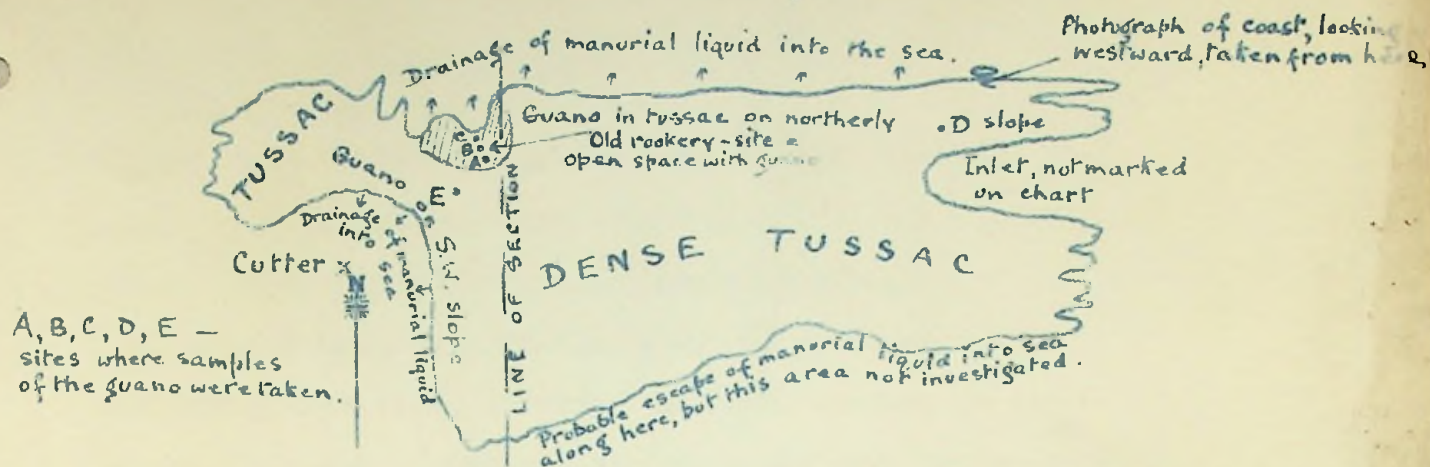 Photograph of coast, looking
westward, taken from
Drainage of manurial liquid into the sea.
TUSSAC
Guano in tussac on northerly
.D slope
Old rookery-site
open space with
C
B
A
Inlet, not marked
on chart
Guano on S.W. slope
E
Drainage of manurial liquid
into sea
Cutter x
N
LINE OF SECTION
DENSE TUSSAC
A, B, C, D, E —
sites where samples
of the guano were taken.
Probable escape of manurial liquid into sea
along here, but this area not investigated.